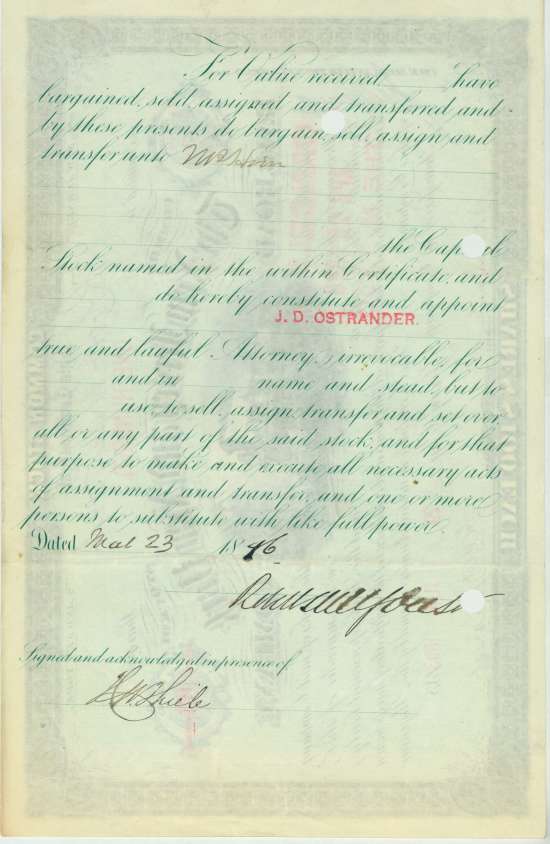 For Value received have
bargained, sold, assigned and transferred and
by these presents do bargain, sell, assign and
transfer unto
the Capital
Stock named in the within Certificate, and
do hereby constitute and appoint
J. D. OSTRANDER.
true and lawful Attorney, irrevocable, for
and in name and stead, but to
use, to sell, assign, transfer and set over,
all or any part of the said stock, and for that
purpose to make and execute all necessary acts
of assignment and transfer, and one or more
persons to substitute with like full power.
Dated Mar 23 1896
Signed and acknowledged in presence of